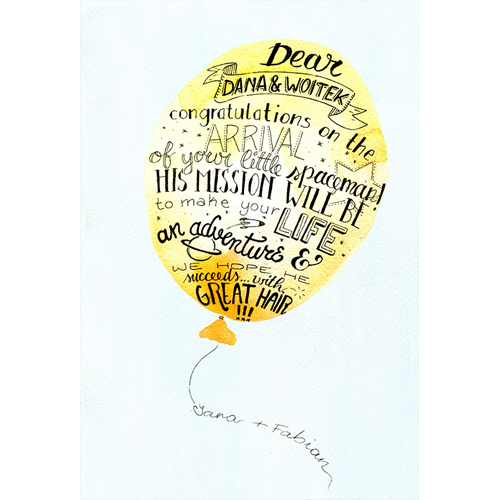 Dear
DANA & WOITEK
congratulations on the
ARRIVAL
of your little spaceman!
HIS MISSION WILL BE
to make your LIFE
an adventure &
WE HOPE HE
succeeds... with...
GREAT HAIR
!!!
Jana + Fabian